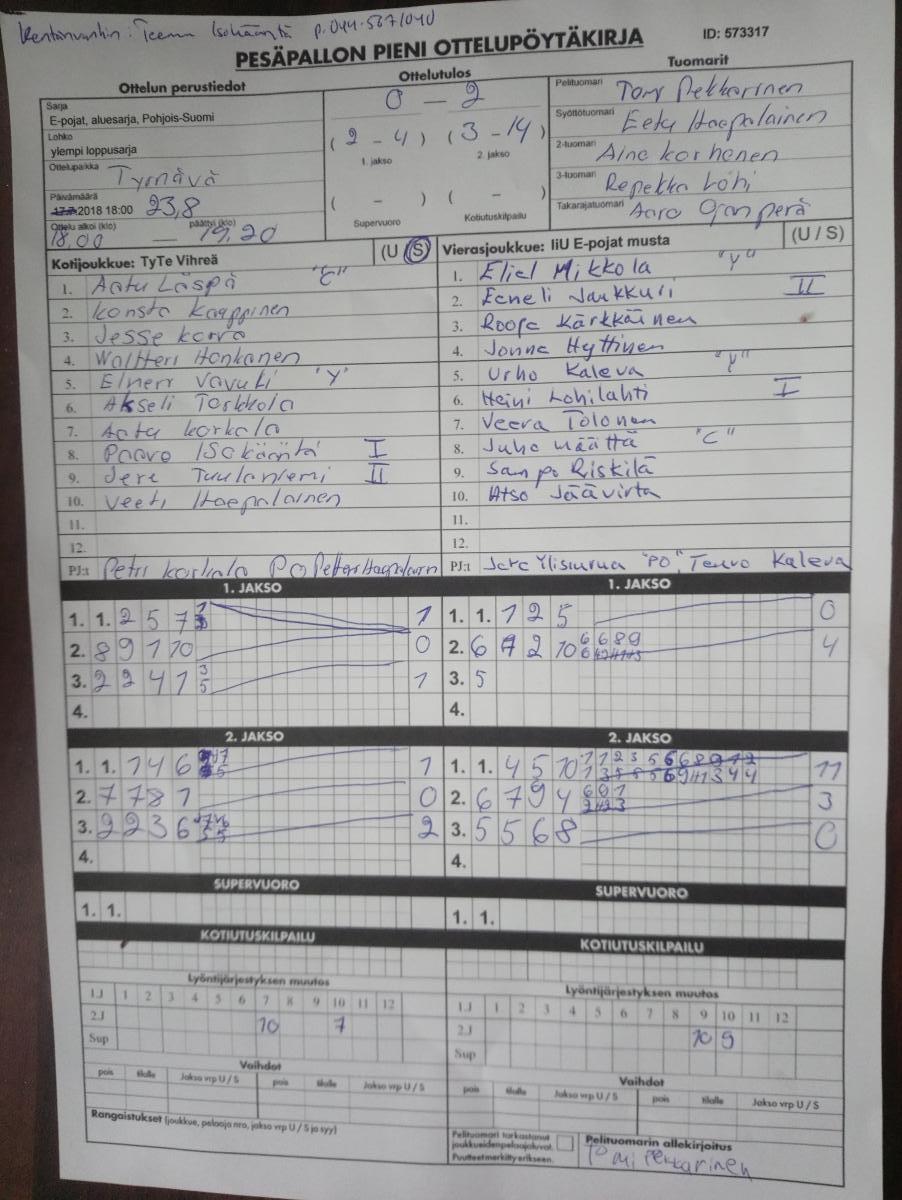 Kentänvanhin: Teemu Isokääntä p. 044-5671040
PESÄPALLON PIENI OTTELUPÖYTÄKIRJA
ID: 573317
Ottelun perustiedot
Sarja
E-pojat, aluesarja, Pohjois-Suomi
Lohko
ylempi loppusarja
Ottelupaikka Tyrnävä
Päivämäärä
2018 18:00 23,8
Ottelu alkoi (klo) päättyi (klo)
18,00 — 19,20
Ottelutulos
0 - 2
(2 - 4) (3 - 14)
1. jakso 2. jakso
( - ) ( - )
Supervuoro Kotiutuskilpailu
Tuomarit
Pelituomari Tomi Pekkarinen
Syöttötuomari Eetu Haapalainen
2-tuomari Aino Korhonen
3-tuomari Repekka Lohi
Takarajatuomari Aaro Ojanperä
Kotijoukkue: TyTe Vihreä (U / S)
1. Aatu Läspä "C"
2. Konsta Kamppinen
3. Jesse Korva
4. Waltteri Honkanen
5. Elmeri Vavuli "Y"
6. Akseli Torkkola
7. Aatu Korkala
8. Paavo Isokääntä I
9. Jere Tuulaniemi II
10. Veeti Haapalainen
11.
12.
PJ:t Petri Korkala PO Petteri Haapalainen
Vierasjoukkue: IiU E-pojat musta (U / S)
1. Eliel Mikkola "Y"
2. Eeneli Jaukkuri II
3. Roope Kärkkäinen
4. Jonna Hyttinen
5. Urho Kaleva "Y"
6. Heini Lohilahti I
7. Veera Tolonen
8. Juho Määttä "C"
9. Sampo Riskilä
10. Atso Jäävirta
11.
12.
PJ:t Jere Ylisuurua "PO", Teuvo Kaleva
1. JAKSO
1. 1. 2 5 7 1
2. 8 9 1 10 0
3. 2 2 4 1 3 5 1
4.
1. JAKSO
1. 1. 1 2 5 0
2. 6 7 2 10 6 6 8 9 4
3. 5
4.
2. JAKSO
1. 1. 1 4 6 1
2. 7 7 8 1 0
3. 2 2 3 6 2
4.
2. JAKSO
1. 1. 4 5 10 11
2. 6 7 9 4 3
3. 5 5 6 8 0
4.
SUPERVUORO
1. 1.
SUPERVUORO
1. 1.
KOTIUTUSKILPAILU
KOTIUTUSKILPAILU
Lyöntijärjestyksen muutos
1.J 1 2 3 4 5 6 7 8 9 10 11 12
2.J 10 7
Sup
Lyöntijärjestyksen muutos
1.J 1 2 3 4 5 6 7 8 9 10 11 12
2.J 10 9
Sup
Vaihdot
pois tilalle Jakso vrp U / S pois tilalle Jakso vrp U / S
Vaihdot
pois tilalle Jakso vrp U / S pois tilalle Jakso vrp U / S
Rangaistukset (joukkue, pelaaja nro, jakso vrp U / S ja syy)
Pelituomari tarkastanut
joukkueiden pelaajaluvat.
Puutteet merkitty erikseen.
Pelituomarin allekirjoitus
Tomi Pekkarinen